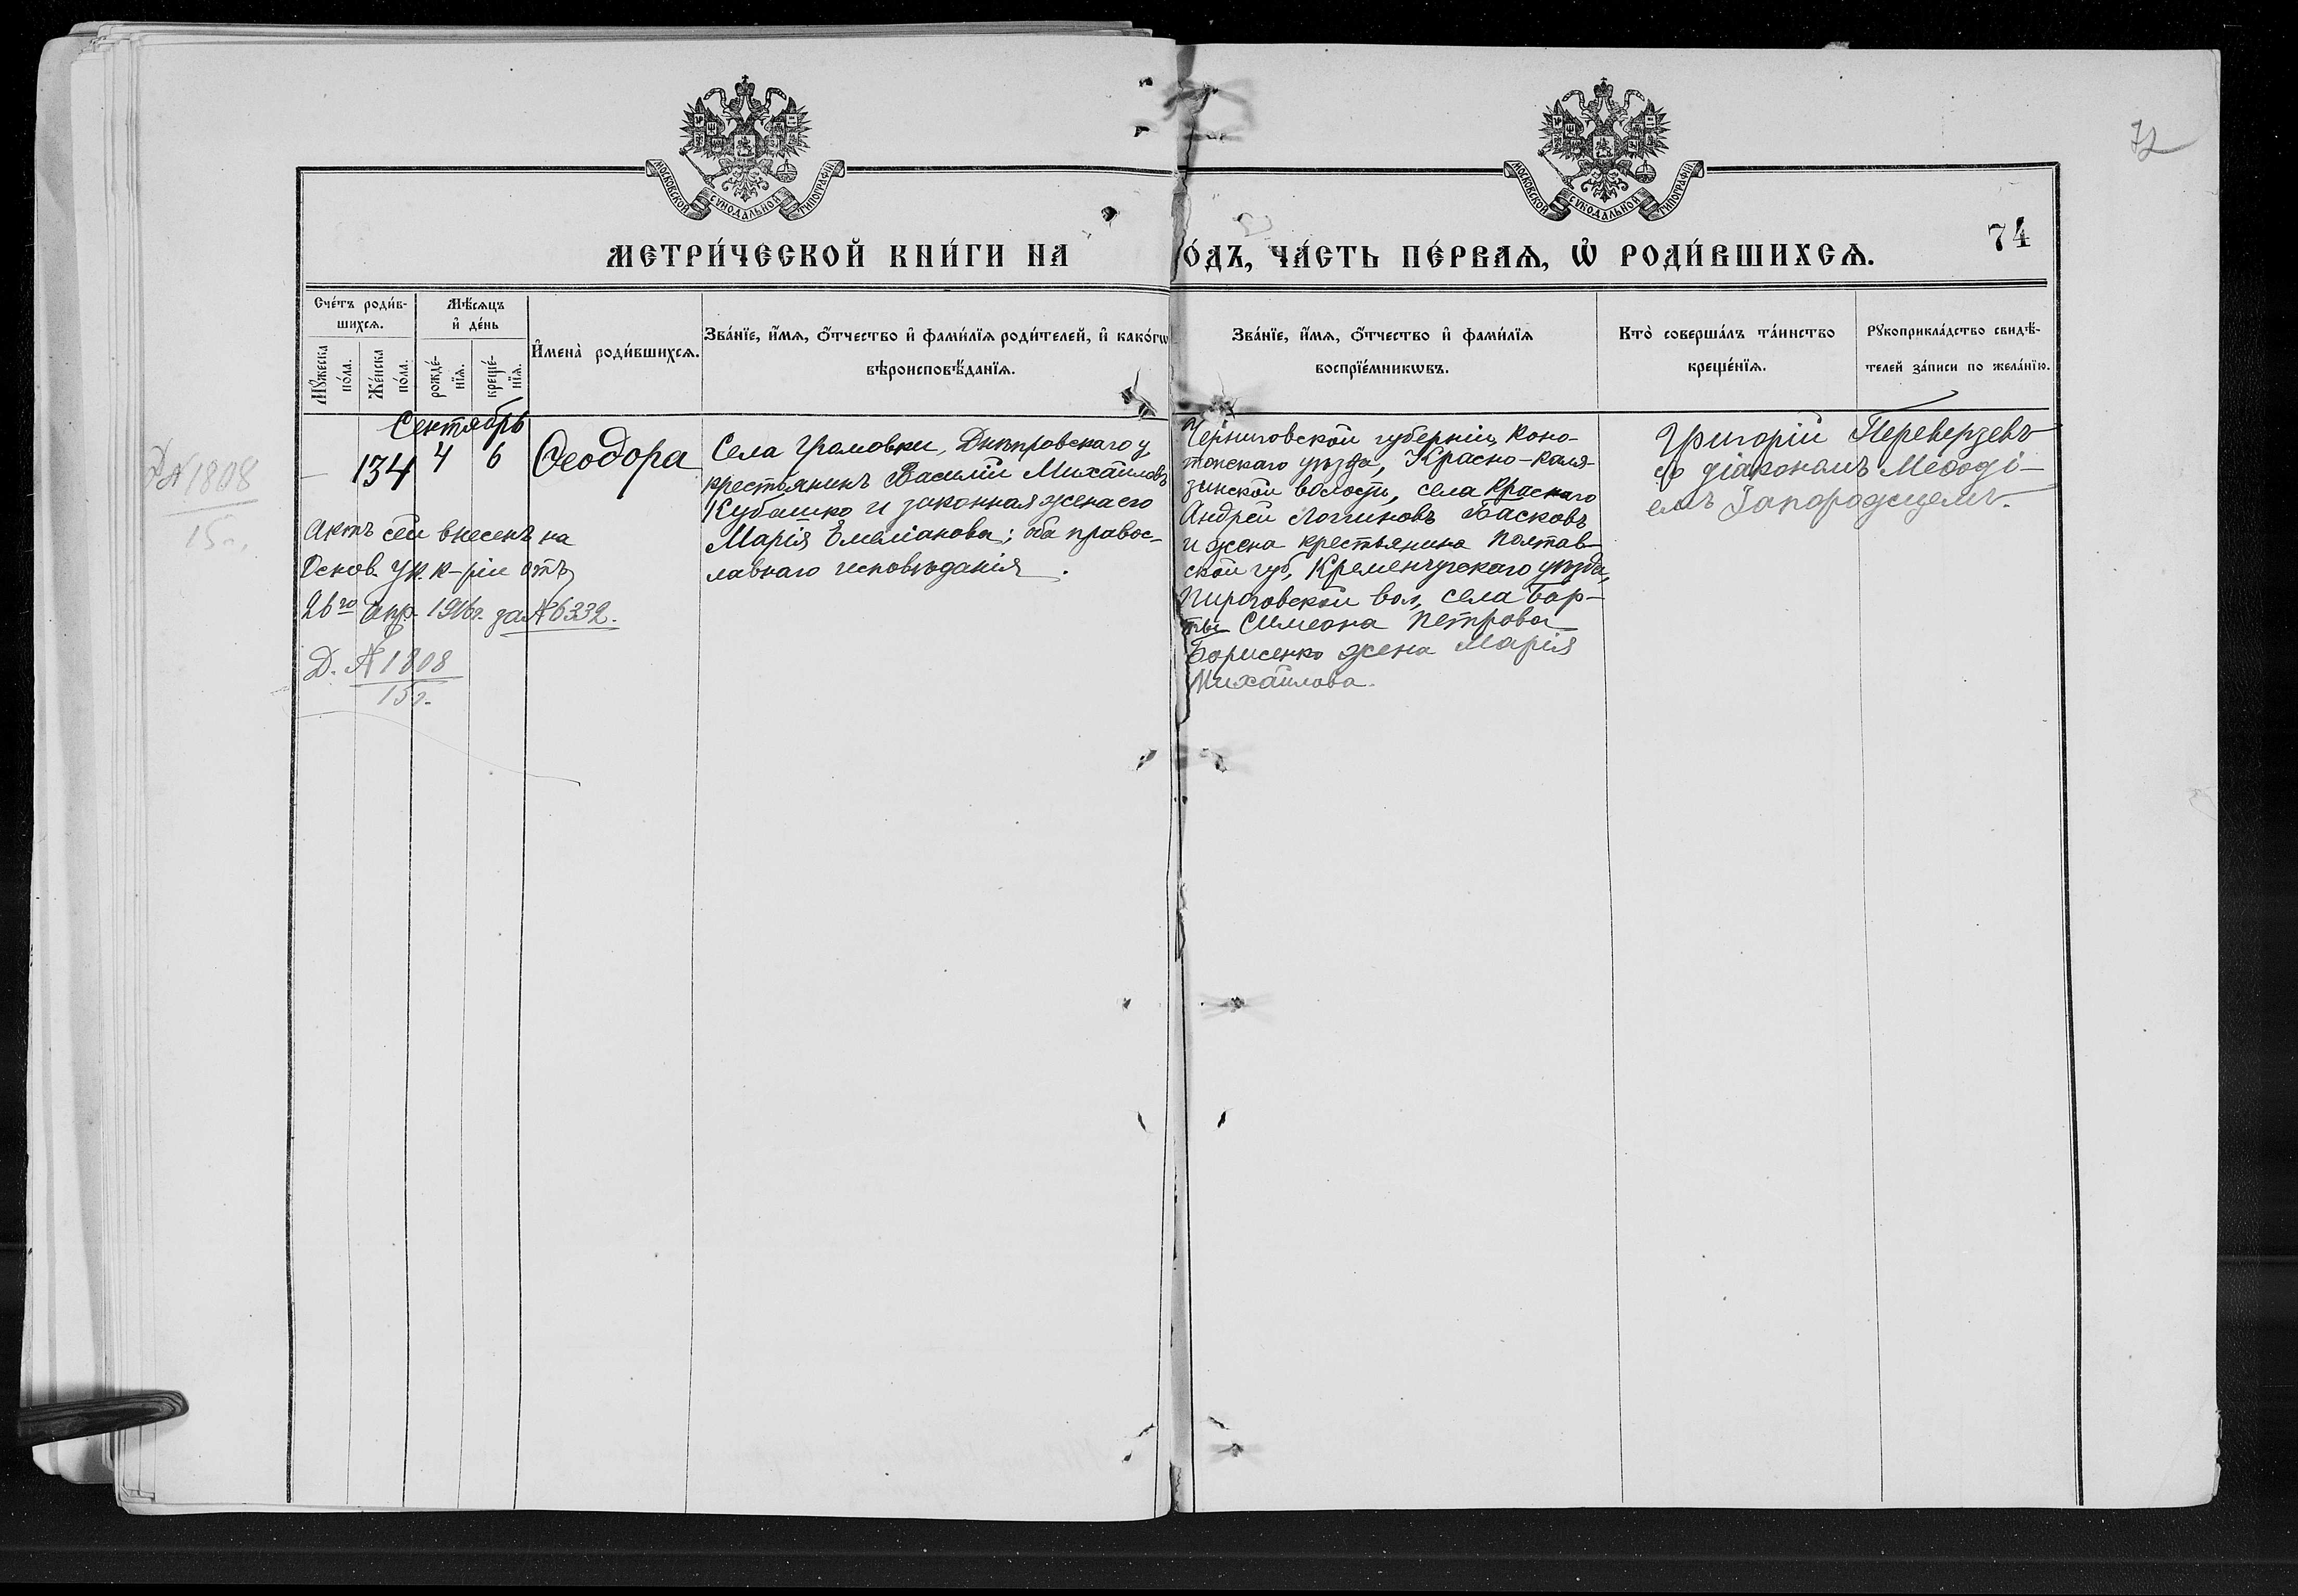 72
МОСКОВСКОЙ СѴНОДАЛЬНОЙ ТИПОГРАФІИ
МОСКОВСКОЙ СѴНОДАЛЬНОЙ ТИПОГРАФІИ
74
МЕТРИ́ЧЕСКОЙ КНИ́ГИ НА
О́ДЪ, ЧА́СТЬ ПЕ́РВАѦ, Ѡ҆ РОДИ́ВШИХСѦ.
Сче́тъ роди́в-
шихсѧ.
Мꙋ́жеска по́ла.
Же́нска по́ла.
Мѣ́сѧцъ
и҆ де́нь
рожде́-
нїѧ.
креще́-
нїѧ.
И҆мена̀ роди́вшихсѧ.
Зва́нїе, и҆́мѧ, ѻ҆́тчество и҆ фами́лїѧ роди́телей, и҆ како́гѡ
вѣроисповѣ́данїѧ.
Зва́нїе, и҆́мѧ, ѻ҆́тчество и҆ фами́лїѧ
воспрїе́мникѡвъ.
Кто̀ соверша́лъ та́инство
креще́нїѧ.
Рꙋкоприкла́дство свидѣ́-
телей за́писи по жела́нїю.
Сентябрь
— 134 4 6 Ѳеодора
Села Громовки, Днѣпровскаго у,
крестьянинъ Василій Михайловъ
Кубашко и законная жена его
Марія Емеліанова; оба правос-
лавнаго исповѣданія.
Черниговской губерніи, Коно-
топскаго уѣзда, Красно-Коля-
динской волости, села Краснаго
Андрей Логиновъ Басковъ
и жена крестьянина Полтав-
ской губ, Кременчугскаго уѣзда,
Пироговской вол, села Бор-
Симеона Петрова
Борисенко жена Марія
Михайлова.
Григорій Переверзевъ
съ діакономъ Меѳоді-
емъ Запорожцемъ.
Д №1808
15 г.
Актъ сей внесенъ на
Основ. Ук. К-ріи отъ
26го Апр. 1916 г. за №6332.
Д. №1808
15 г.